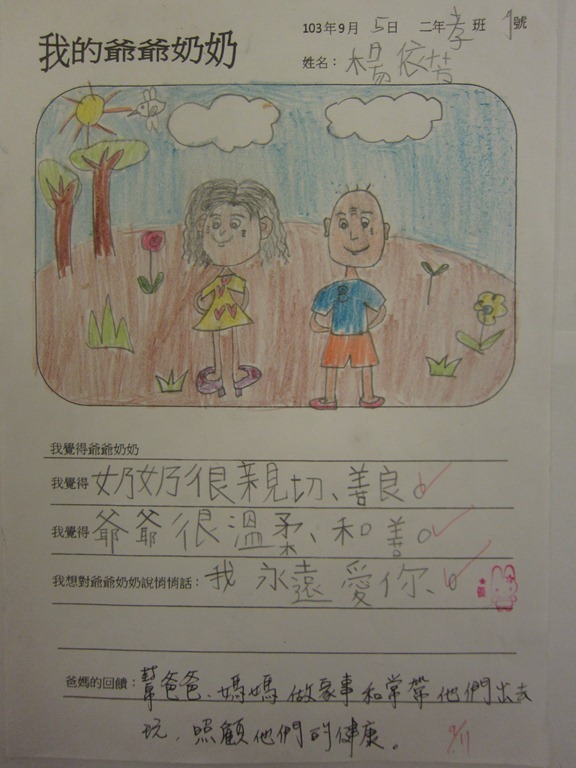 103年9月5日 二年孝班 1號
我的爺爺奶奶
姓名：楊依芳
我覺得爺爺奶奶
我覺得奶奶很親切、善良。
我覺得爺爺很溫柔、和善。
我想對爺爺奶奶說悄悄話：我永遠愛你、。
爸媽的回饋：幫爸爸、媽媽做家事和常帶他們出去
玩，照顧他們的健康。
9/11